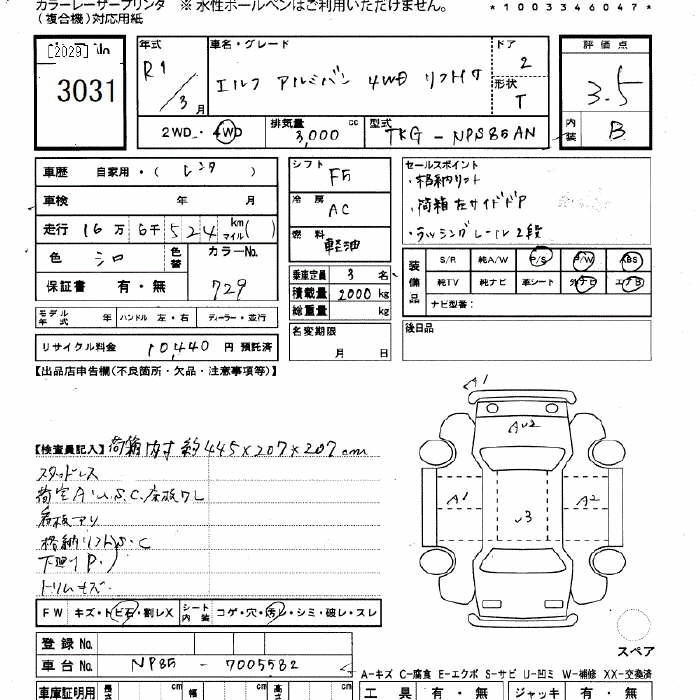 カラーレーザープリンタ ※ 水性ボールペンはご利用いただけません。
(複合機)対応用紙
*1003346047*
[2029]
3031
年式 R1/3月
車名・グレード エルフ アルミバン 4WD リフト付
ドア 2
形状 T
2WD・4WD 排気量 3,000 cc 型式 TKG-NPS85AN
評価点 3.5
内装 B
車歴 自家用・(レンタ)
車検 年 月
走行 16万 6千 524 km マイル( )
色 シロ 色替 カラーNo. 729
保証書 有・無
シフト F5
冷房 AC
燃料 軽油
乗車定員 3 名
積載量 2000 kg
総重量 kg
名変期限 月 日
セールスポイント
・格納リフト
・荷箱左サイドドア
・ラッシングレール2段
装備品 S/R 純A/W P/S P/W ABS
純TV 純ナビ 革シート 外ナビ エアB
ナビ型番:
後日品
モデル年式 年 ハンドル 左・右 ディーラー・並行
リサイクル料金 10,440 円 預託済
【出品店申告欄(不良箇所・欠品・注意事項等)】
【検査員記入】荷箱内寸 約445×207×207cm
スタッドレス
荷室A.U.S.C.床板ワレ
看板アリ
格納リフトS・C
トリムキズ
A1
A1
A2
FW キズ・トビ石・割レX シート内装 コゲ・穴・汚レ・シミ・破レ・スレ
登録 No.
車台 No. NPS85 - 7005582
スペア
A-キズ C-腐食 E-エクボ S-サビ U-凹ミ W-補修 XX-交換済
車庫証明用 長さ cm 幅 cm 高さ cm
工具 有・無 ジャッキ 有・無